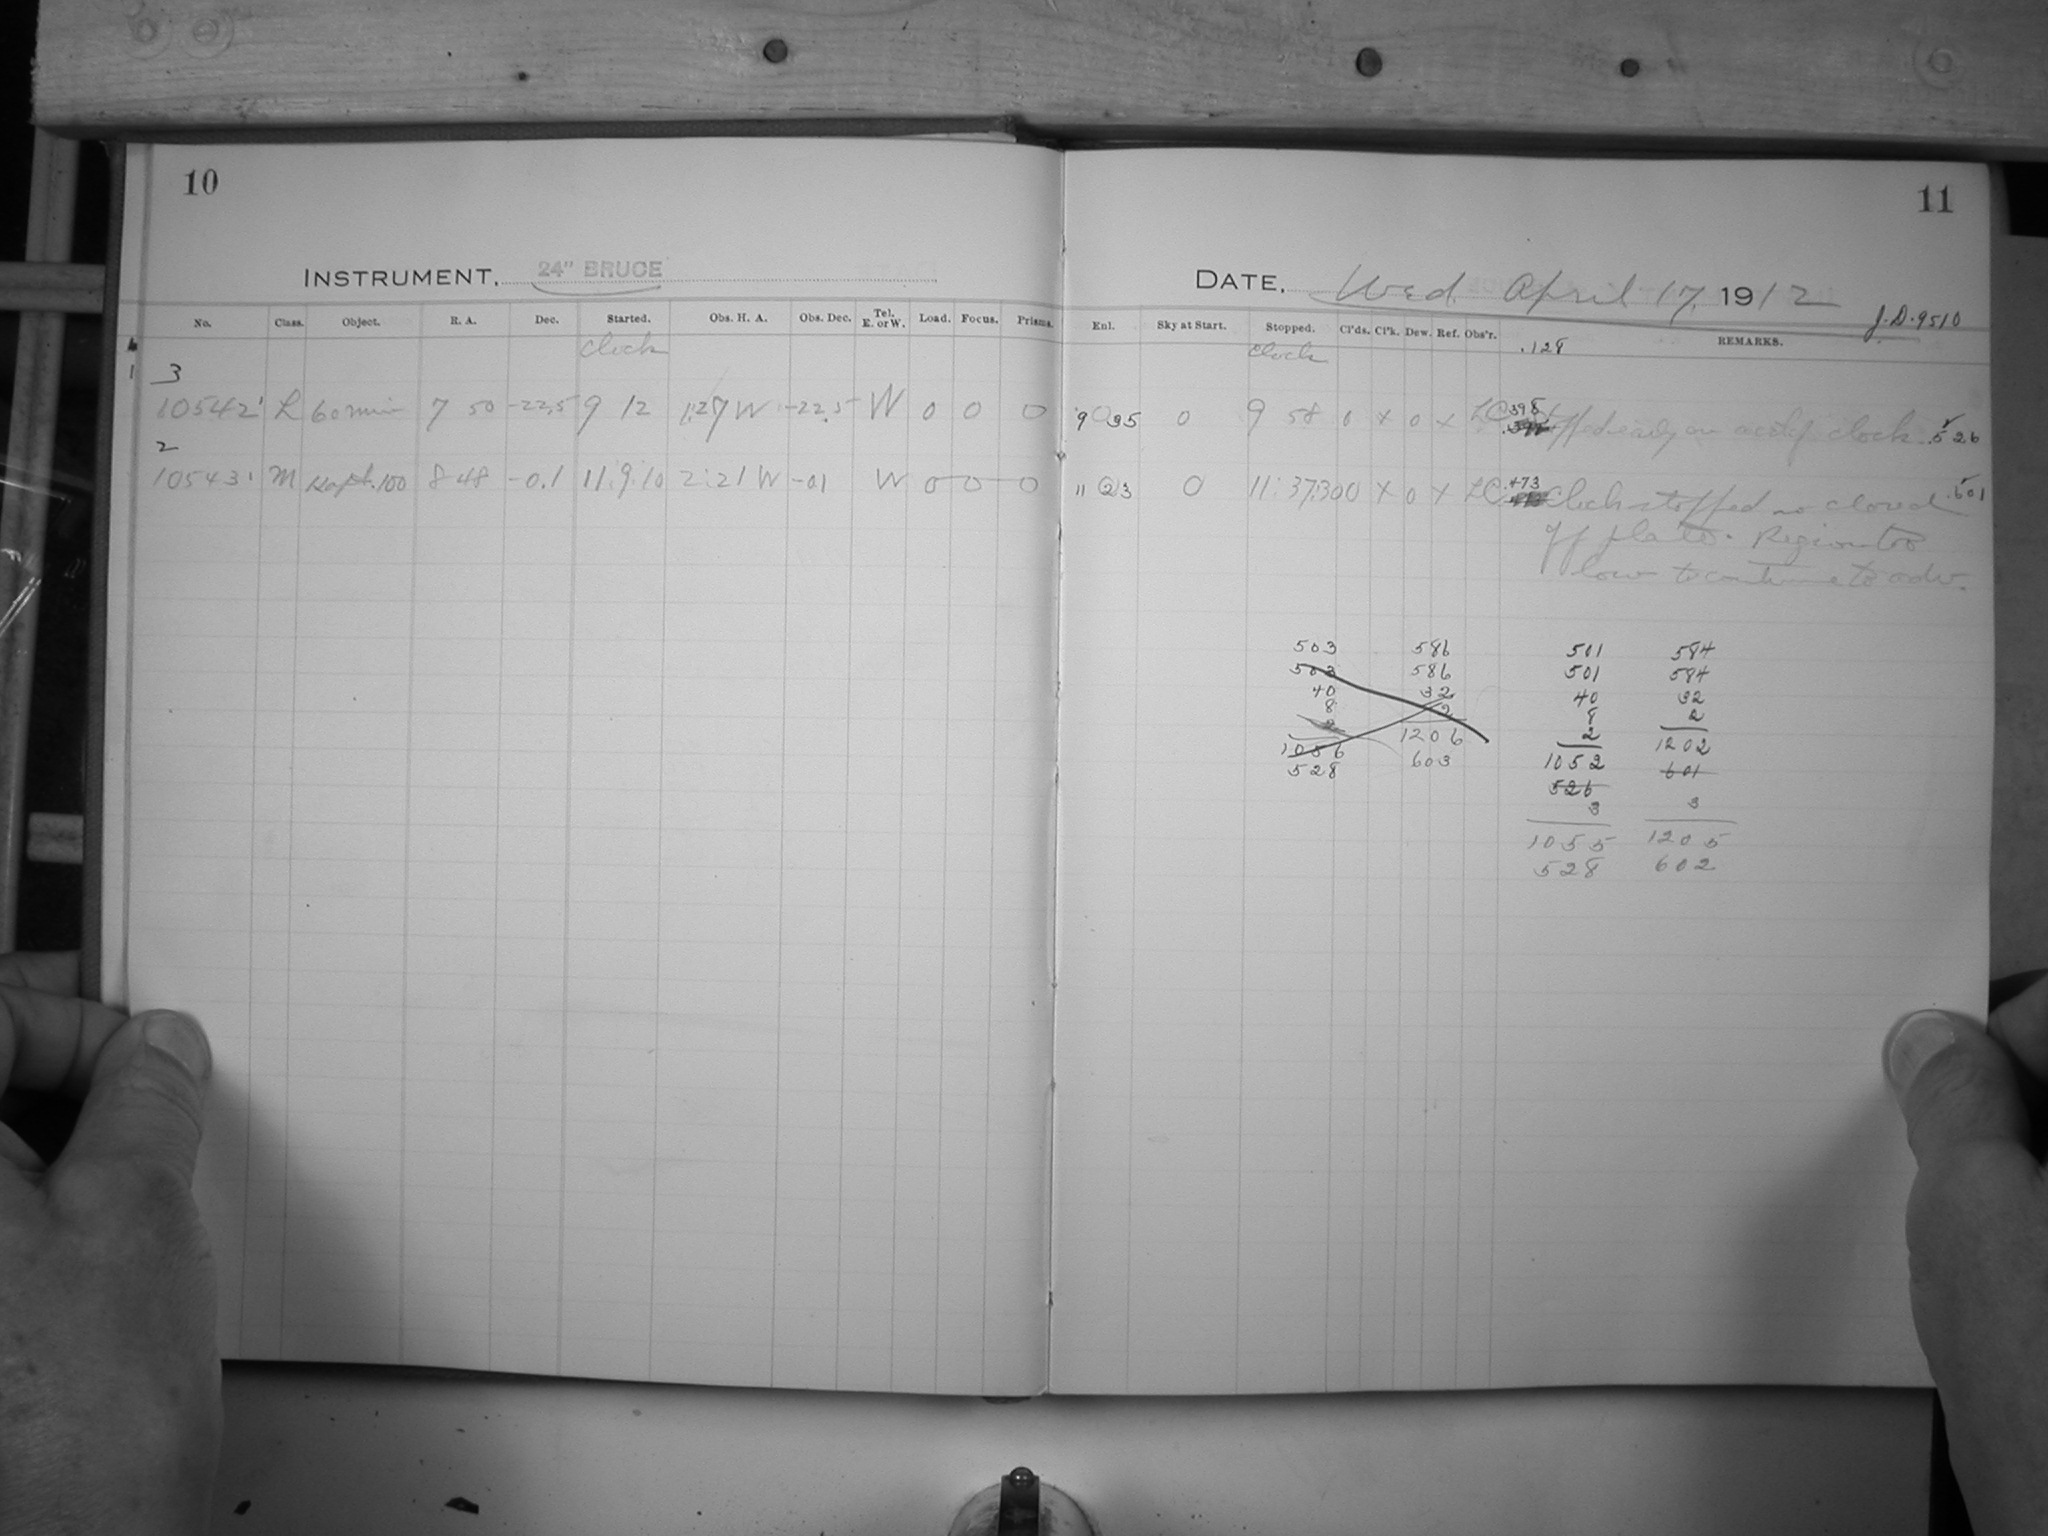 10
INSTRUMENT. 24" BRUCE
No. Class. Object. R. A. Dec. Started. Obs. H. A. Obs. Dec. Tel. E. or W. Load. Focus. Prisms.
clock
3
10542 L 60 min 7 50 -22.5 9 12 1:27 W -22.5 W 0 0 0
2
10543 M 8 48 -0.1 11:9:10 2:21 W -01 W 0 0 0
11
DATE. Wed April 17, 1912
J.D. 9510
Enl. Sky at Start. Stopped. Cl'ds. Cl'k. Dew. Ref. Obs'r. REMARKS.
clock .128
9 35 0 9 58 0 x 0 x LC .398 clock .526
11 23 0 11:37:30 0 x 0 x LC .473 Clock stopped so closed .601
off plate. Region too
low to continue to adv.
503 586 501 584
503 586 501 584
40 32 40 32
8 2 8 2
2
1056 1206 1052 1202
528 603 526 601
3 3
1055 1205
528 602